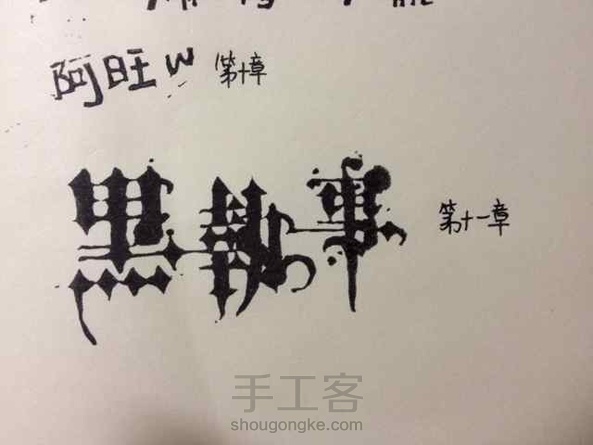 阿旺W 第十章
黒執事 第十一章
手工客
shougongke.com